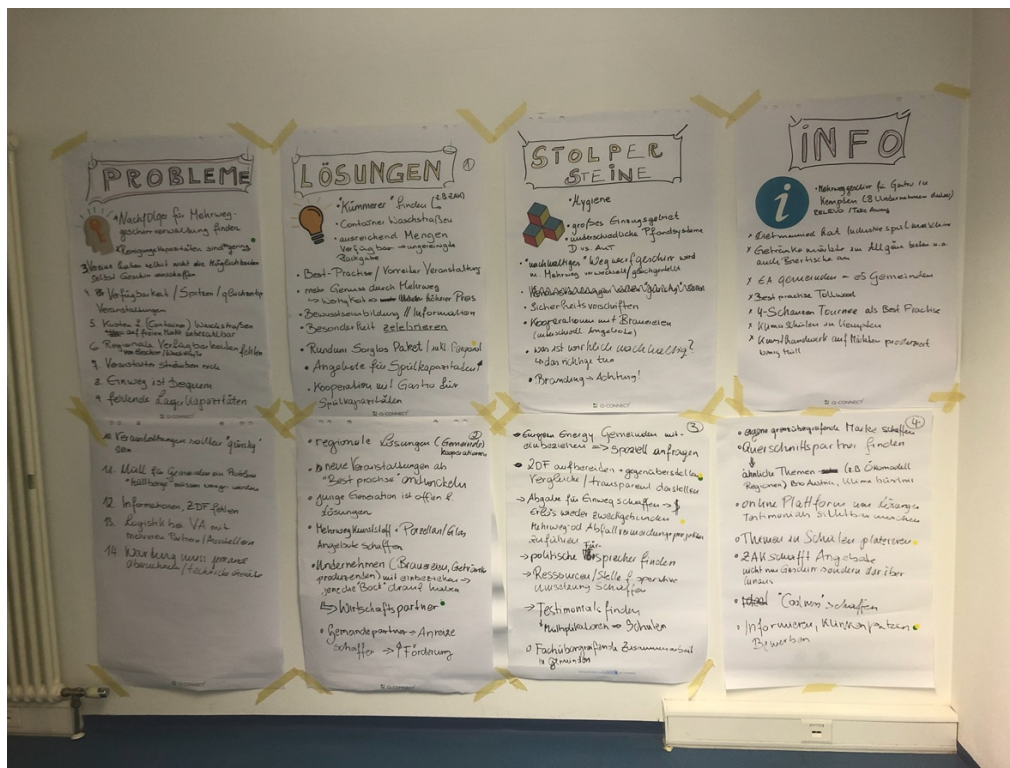 PROBLEME
• Nachfolger für Mehrweg-
geschirrverwaltung finden
Reinigungskapazitäten sind gering
3. Vereine haben selbst nicht die Möglichkeiten
selbst Geschirr
4. Verfügbarkeit / Spitzen / gleichzeitige
Veranstaltungen
5. Kosten f. (Container) Waschstraßen
auf freien Markt unbezahlbar
6. Regionale Verfügbarkeiten fehlen
7. Veranstalter sträuben sich
8. Einweg ist Bequem
9. fehlende Lagerkapazitäten
Q-CONNECT
10. Veranstaltungen sollen "günstig"
sein
11. Müll für Gemeinden ein Problem
12. Informationen, ZDF fehlen
13. Logistik bei VA mit
mehreren Partnern / Ausstellern
14. Wartung muss jemand
übernehmen / technische
LÖSUNGEN
1
• "Kümmerer" finden (z.B. ZAK)
• Container Waschstraßen
• ausreichend Mengen
Verfügbar → ungereinigte
Rückgabe
• Best-Practise / Vorreiter Veranstaltung
• mehr Genuss durch Mehrweg
→ Wertigkeit → höherer Preis
• Bewusstseinsbildung // Information
• Besonderheit zelebrieren
• Rundum Sorglos Paket / inkl. Personal
• Angebote für Spülkapazitäten
• Kooperation mit Gastro für
Spülkapazitäten
Q-CONNECT
2
• regionale Lösungen (Gemeinde
kooperationen)
• neue Veranstaltungen als
"Best practise" entwickeln
• junge Generation ist offen f.
Lösungen
• Mehrwegkunststoff • Porzellan / Glas
Angebote schaffen
• Unternehmen (Brauereien, Getränke
produzenten) mit einbeziehen →
jene die "Bock" drauf haben
↳ Wirtschaftspartner
• Gemeindepartner → Anreize
schaffen → ↑ Förderung
Q-CONNECT
STOLPER
STEINE
• Hygiene
• großes Einzugsgebiet
• unterschiedliche Pfandsysteme
D vs. AUT
• "nachhaltiges" Wegwerfgeschirr wird
m. Mehrweg verwechselt / gleichgestellt
• Sicherheitsvorschriften
• Kooperationen mit Brauereien
• was ist wirklich nachhaltig?
↳ das richtige tun
• Branding → Achtung!
Q-CONNECT
3
• Europ. Energy Gemeinden mit-
einbeziehen → speziell anfragen
• ZDF aufbereiten + gegenüberstellen
Vergleiche / transparent darstellen
→ Abgabe für Einweg schaffen →
Erlös wieder zweckgebunden
Mehrweg- od. Abfallvermeidungsprojekten
zuführen
→ politische Fürsprecher finden
→ Ressourcen / Stelle f. operative
Umsetzung schaffen
→ Testimonials finden
Multiplikatoren → Schulen
• Fachübergreifende Zusammenarbeit
in Gemeinden
INFO
i
• Mehrweggeschirr für Gastro in
Kempten (z.B. Unternehmen
RELEVO / Take Away
x Dietmannsried hat Industriespülmaschine
x Getränkemärkte im Allgäu bieten u.a.
auch Biertische an
x EA Gemeinden → e5 Gemeinden
x Best practise Tollwood
x 4-Schanzen Tournee als Best Practise
x Klimaschulen in Kempten
x Kunsthandwerk auf Märkten
Q-CONNECT
4
• eigene grenzübergreifende Marke schaffen
• Querschnittspartner finden
↓
ähnliche Themen (z.B. Ökomodell
Regionen) Bio Austria, Klima bündnis
• online Plattform von Lösungen
Testimonials sichtbar machen
• Themen in Schulen platzieren
• ZAK schafft Angebote
nicht nur Geschirr sondern darüber
hinaus
• "Coolness" schaffen
• Informieren, Klinken putzen
Bewerben